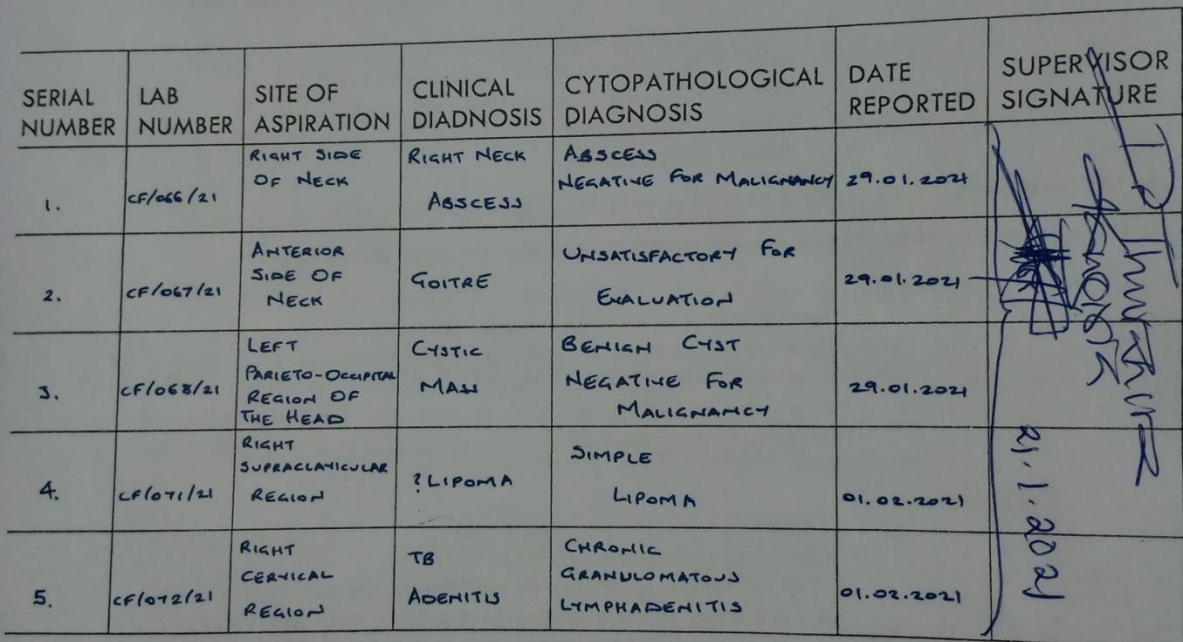 SERIAL NUMBER
LAB NUMBER
SITE OF ASPIRATION
CLINICAL DIADNOSIS
CYTOPATHOLOGICAL DIAGNOSIS
DATE REPORTED
SUPERVISOR SIGNATURE
1.
CF/066/21
RIGHT SIDE
OF NECK
RIGHT NECK
ABSCESS
ABSCESS
NEGATIVE FOR MALIGNANCY
29.01.2021
2.
CF/067/21
ANTERIOR
SIDE OF
NECK
GOITRE
UNSATISFACTORY FOR
EVALUATION
29.01.2021
3.
CF/068/21
LEFT
PARIETO-OCCIPITAL
REGION OF
THE HEAD
CYSTIC
MASS
BENIGN CYST
NEGATIVE FOR
MALIGNANCY
29.01.2021
4.
CF/071/21
RIGHT
SUPRACLAVICULAR
REGION
?LIPOMA
SIMPLE
LIPOMA
01.02.2021
5.
CF/072/21
RIGHT
CERVICAL
REGION
TB
ADENITIS
CHRONIC
GRANULOMATOUS
LYMPHADENITIS
01.02.2021
21.1.2021